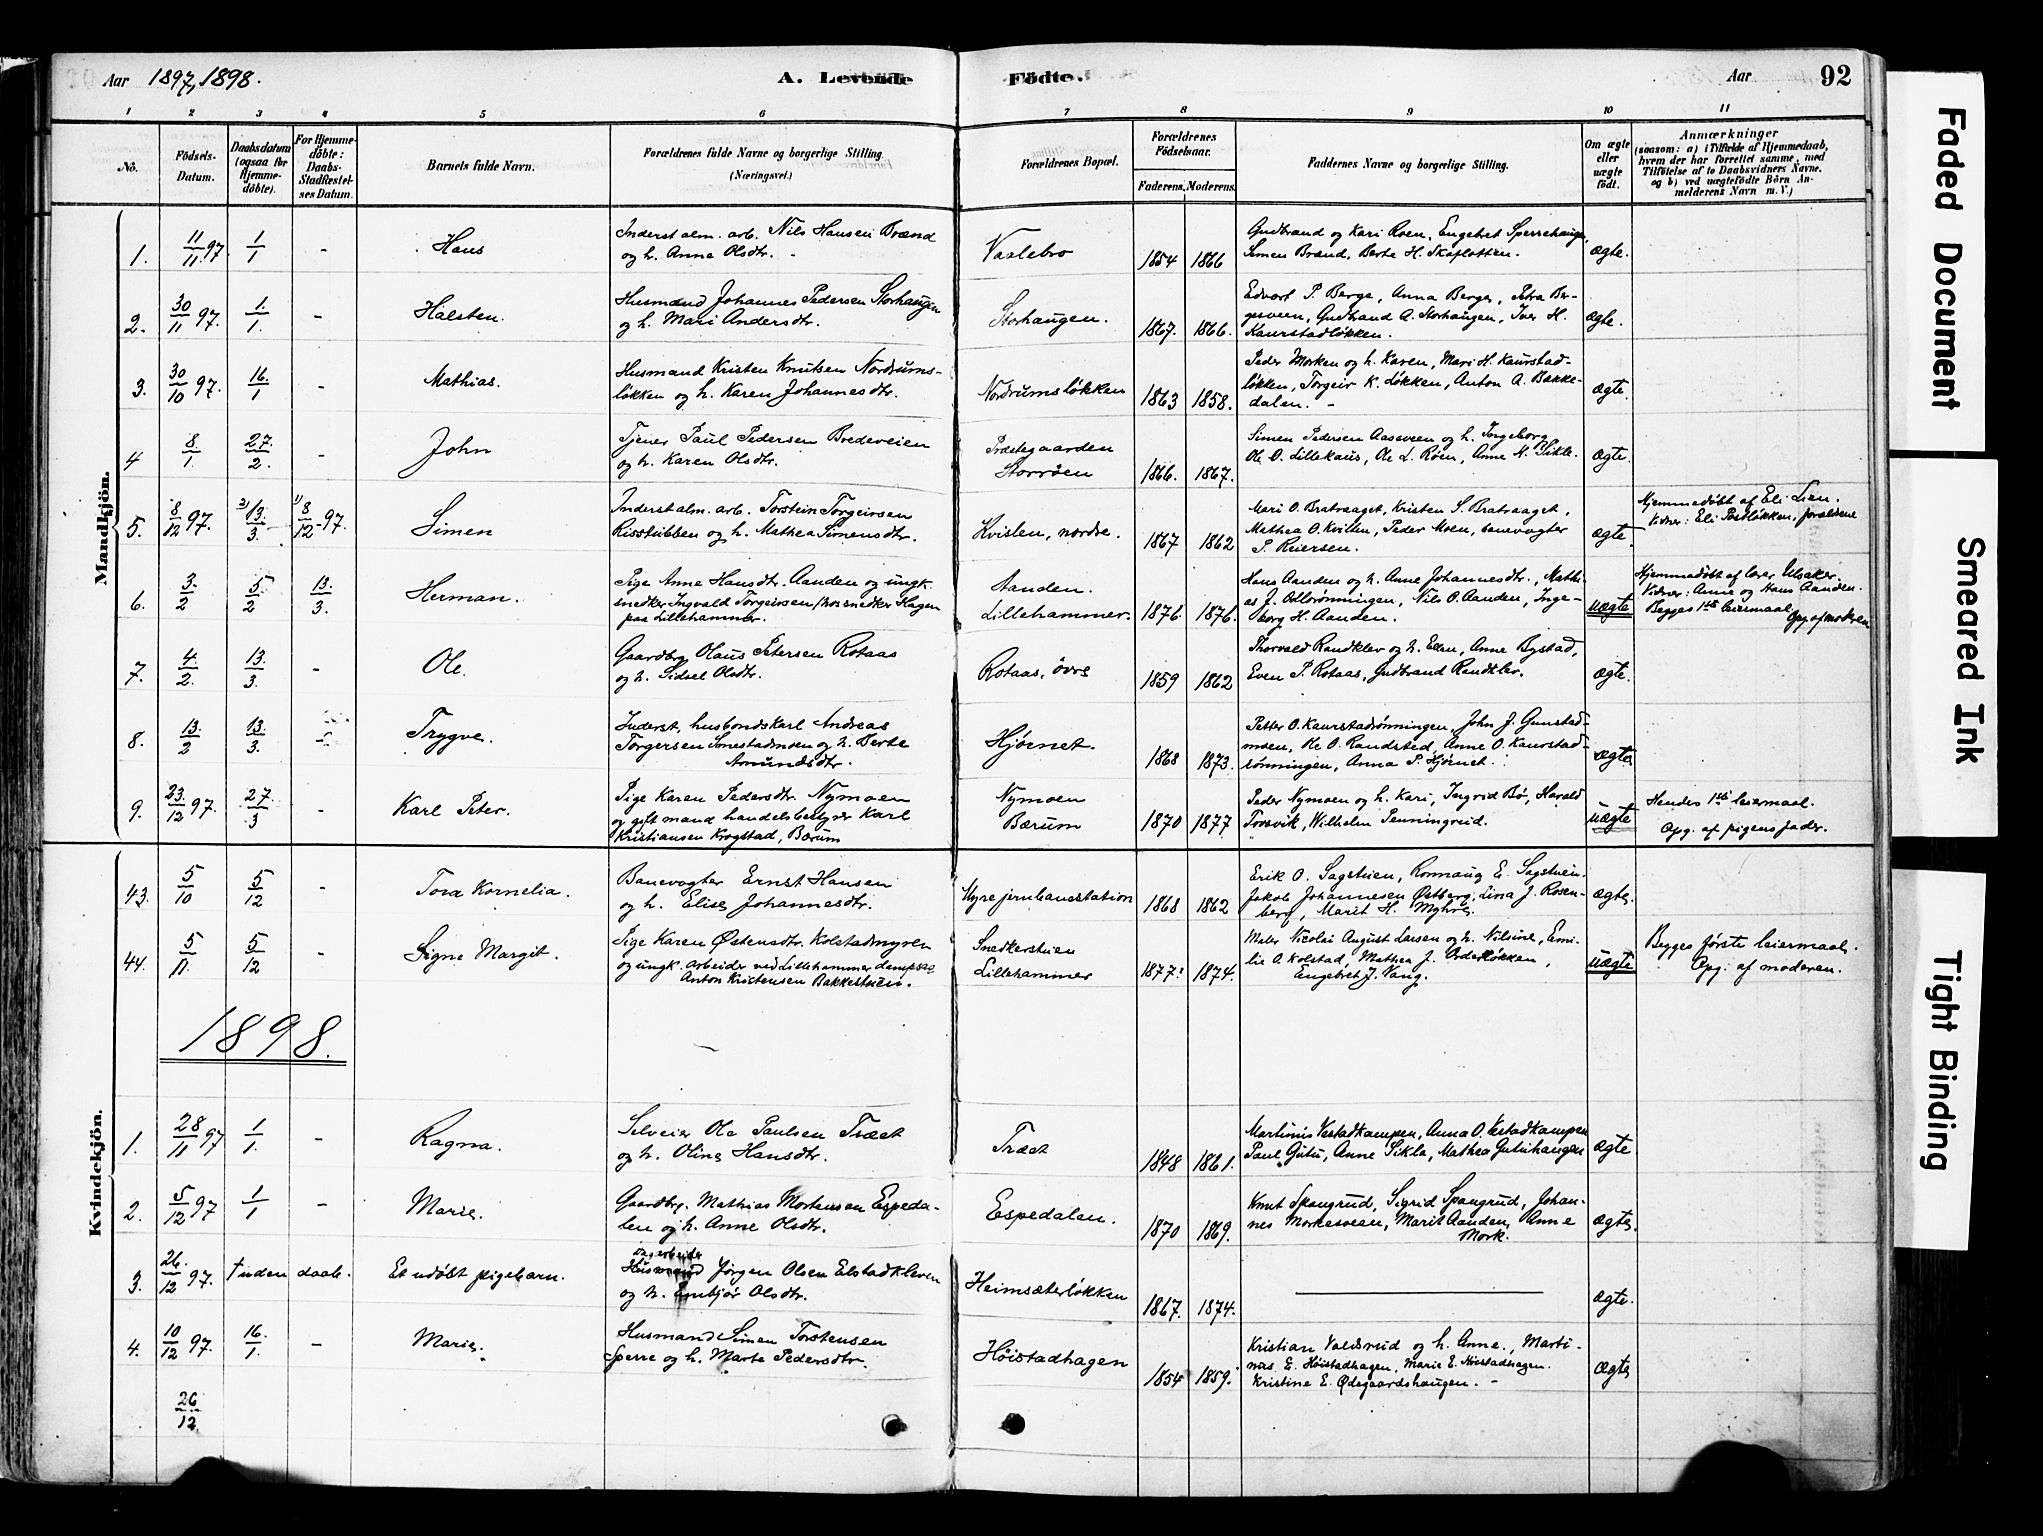 Aar 1897, 1898.
A. Levende Födte.
Aar
92
1 2 3 4 5 6 7 8 9 10 11
No.
Födsels-Datum.
Daabsdatum (ogsaa for Hjemmedöbte).
For Hjemmedöbte: Daabs-Stadfæstelses Datum.
Barnets fulde Navn.
Forældrenes fulde Navne og borgerlige Stilling (Næringsvei.)
Forældrenes Bopæl.
Forældrenes Födselsaar.
Faderens. Moderens.
Faddernes Navne og borgerlige Stilling.
Om ægte eller uægte födt.
Anmærkninger
(saasom: a) i Tilfælde af Hjemmedaab, hvem der har forrettet samme, med Tilföielse af to Daabsvidners Navne, og b) ved uægtefödte Börn Anmelderens Navn m. V.)
Mandkjön.
1. 11/11 97 1/1 - Hans
Inderst alm. arb. Nils Hansen Brænd
og h. Anne Olsdtr. -
1854 1866
Gudbrand og Kari Roen, Engebret Sperrehaugen,
Simen Brænd, Berte H. Skaplotten.
ægte.
2. 30/11 97. 1/1. - Halsten.
Husmand Johannes Pedersen Storhaugen
og h. Mari Andersdtr.
Storhaugen.
1867. 1866.
Edvart P. Berge, Anna Berge, Petra Ber-
gesveen, Gudbrand A. Storhaugen, Iver H.
Kaurstadløkken.
ægte.
3. 30/10 97. 16/1 - Mathias.
Husmand Kristen Knutsen Nordrums-
løkken og h. Karen Johannesdtr.
Nordrumsløkken
1863 1858.
Peder Morken og h. Karen, Mari H. Kaurstad-
løkken, Torgeir K. Løkken, Anton A. Bakke-
dalen. -
ægte.
4 8/1. 27/2. - John
Tjener Paul Pedersen Bredeveien
og h. Karen Olsdtr.
Præstegaarden
Storrøen
1866. 1867.
Simen Pedersen Aassveen og h. Ingeborg
Ole O. Lillehaus, Ole L. Röen, Anne N. Sikle.
ægte.
5. 8/12 97. 2) 13/3 1) 8/12 -97. Simen
Inderst alm. arb. Torstein Torgeirsen
Risstubben og h. Mathea Simensdtr.
Hvislen, nordre.
1867 1862
Mari O. Bratraaget, Kristen S. Bratraaget,
Mathea O. Kvillen, Peder Moen, banevogter
P. Reiersen.
ægte.
Hjemmedøbt af Eli Lien.
Vidner: Eli Postløkken, forældrene
6. 3/2 5/2 13/3. Herman.
Pige Anne Hansdtr. Aanden og ungk.
snedker Ingvald Torgeirsen, hos snedker Hagen
paa Lillehammer.
Aanden.
Lillehammer.
1876. 1876.
Hans Aanden og h. Anne Johannesdtr., Mathi-
as J. Odlorønningen, Nils O. Aanden, Inge-
borg H. Aanden.
uægte
Hjemmedøbt af lærer Ulsaker.
Vidner: Anne og Hans Aanden.
Begges 1ste leiermaal
Opg. af moderen
7. 4/2. 13/3. - Ole.
Gaardbr. Olaus Petersen Rotaas
og h. Sidsel Olsdtr.
Rotaas, övre
1859 1862
Thorvald Randklev og h. Ellen, Anne Bystad,
Even P. Rotaas, Gudbrand Randklev.
ægte.
8. 13/2 13/3. - Trygve.
Inderst, husbondskarl Andreas
Torgersen Sonestadmoen og h. Berte
Amundsdtr.
Hjørnet.
1868 1873.
Petter O. Kaurstadrønningen, John J. Gunstad-
moen, Ole O. Randsted, Anne O. Kaurstad-
rønningen, Anna P. Hjørnet.
ægte
9. 23/12 97. 27/3 - Karl Peter.
Pige Karen Pedersdtr. Nymoen
og gift mand handelsbestyrer Karl
Kristiansen Krogstad, Bærum
Nymoen
Bærum
1870 1877
Peder Nymoen og h. Kari, Ingrid Bø, Harald
Torsvik, Wilhelm Penningrud.
uægte
Hendes 1ste leiermaal.
Opg. af pigens fader.
43. 5/10 5/12 - Tora Kornelia.
Banevogter Ernst Hansen
og h. Elise Johannesdtr.
Hyre jernbanestation
1868 1862
Erik O. Sagstuen, Ronnaug E. Sagstuen.
Jakob Johannesen Østberg, Lina J. Rosen-
berg, Marit H. Myhre.
ægte.
44. 5/11. 5/12 Signe Margit.
Pige Karen Østensdtr. Kolstadmyren
og ungk. arbeider ved Lillehammer dampsag
Anton Kristensen Bakkestuen.
Snedkerstuen
Lillehammer
1877? 1874.
Maler Nicolai August Larsen og h. Nilsine, Emi-
lie A. Kolstad, Mathea J. Ørdeløkken,
Engebret J. Vang.
uægte
Begges første leiermaal.
Opg. af moderen.
1898.
Kvindekjön.
1. 28/11 97 1/1. - Ragna.
Selveier Ole Paulsen Træet
og h. Oline Hansdtr.
Træet
1848 1861.
Martinus Vestadkampen, Anna O. Vestadkampen
Paul Gutu, Anne Sikla, Mathea Gutuhaugen
ægte
2. 5/12 97 1/1 - Marie.
Gaardbr. Mathias Mortensen Espeda-
len og h. Anne Olsdtr.
Espedalen.
1870 1869.
Knut Spangrud, Sigrid Spangrud, Johan-
nes Morkesveen, Marit Aanden, Anne
Mork.
ægte.
3. 26/12 97. † uden daab. Et udøbt pigebarn.
Dagarbeider
Husmand Jørgen Olsen Elstadkleven
og h. Embjør Olsdtr.
Heimsæterløkken
1867. 1874.
ægte.
4. 10/12 97. 16/1. - Marie.
Husmand Simen Torstensen
Sperre og h. Marte Pedersdtr.
Høistadhagen
1854 1859.
Kristian Voldsrud og h. Anne., Marti-
nus E. Høistadhagen, Marie E. Høistadhagen.
Kristine E. Ødegaardshaugen. -
ægte
26/12.
Faded Document
Smeared Ink
Tight Binding